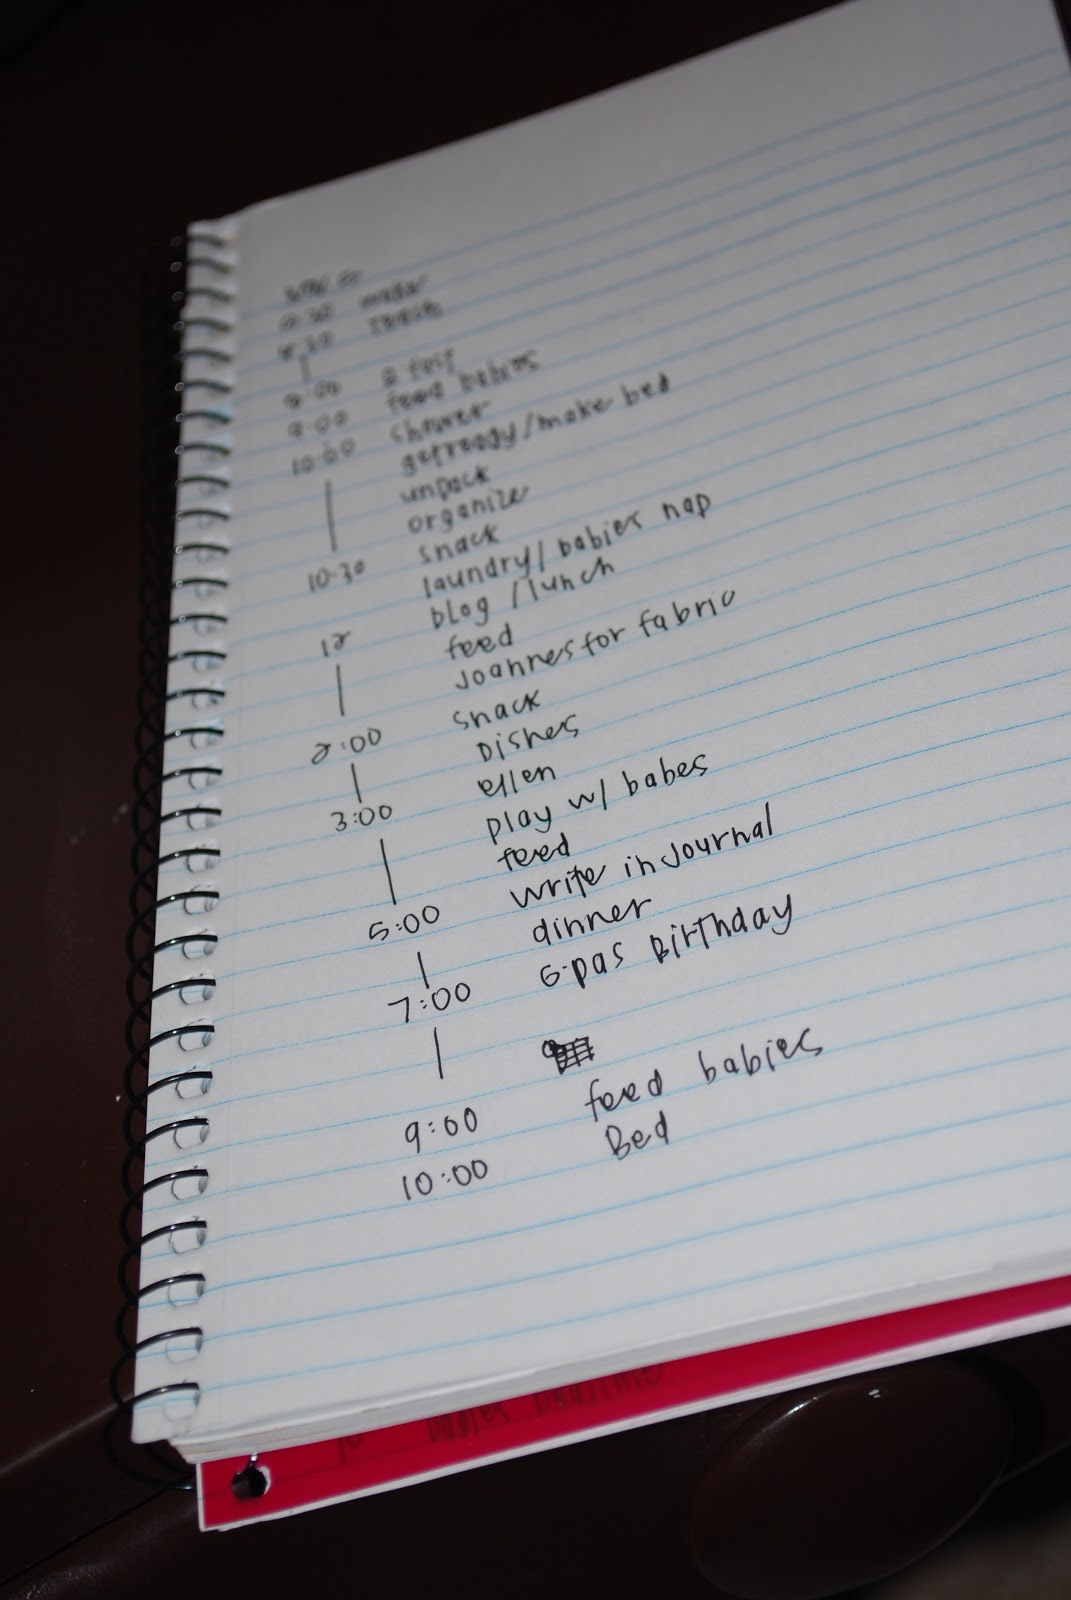 8:30 teach
9:00 feed babies
shower
10:00 getready/make bed
unpack
organize
snack
10:30 laundry/babies nap
blog/lunch
12 feed
Joannes for fabric
snack
2:00 Dishes
ellen
3:00 play w/ babes
feed
write in Journal
5:00 dinner
G-pas Birthday
7:00
9:00 feed babies
10:00 Bed